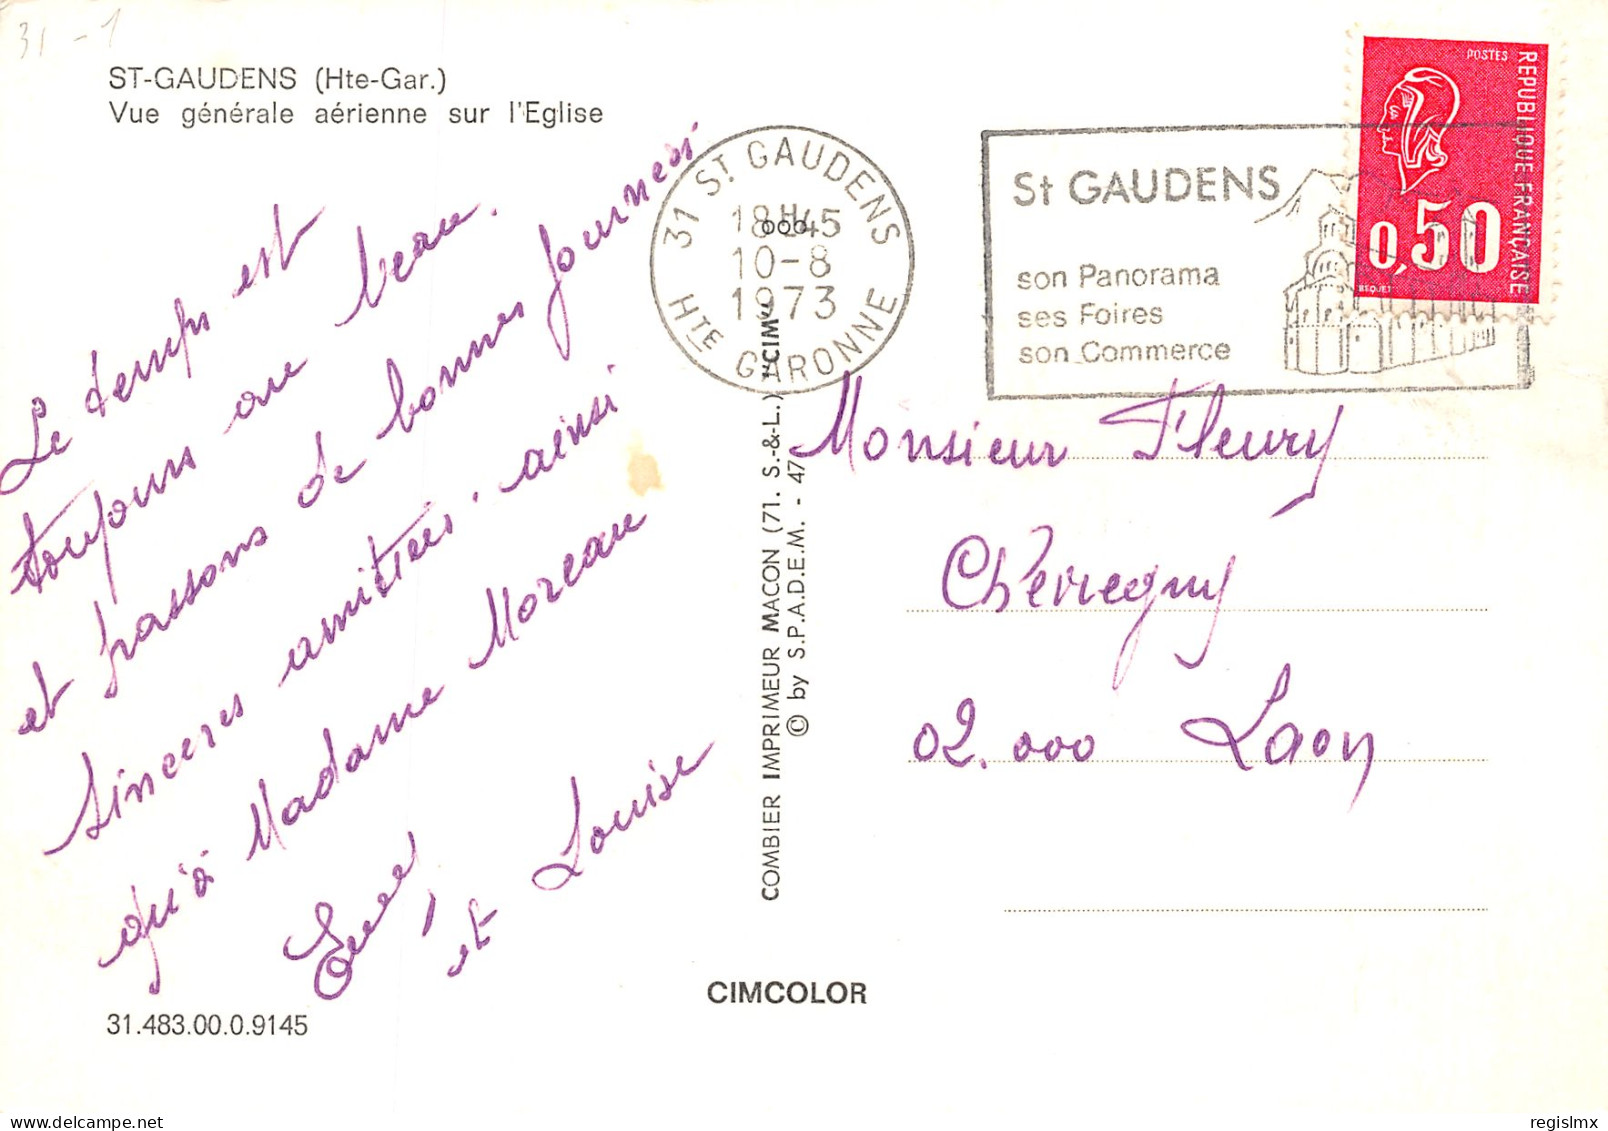 31-1
ST-GAUDENS (Hte-Gar.)
Vue générale aérienne sur l'Eglise
Le temps est
toujours au beau.
et passons de bonnes journées
Sincères amitiés. ainsi
qu'à Madame Moreau
et Louise
31.483.00.0.9145
31 ST. GAUDENS
18H45
10-8
1973
HTE GARONNE
St GAUDENS
son Panorama
ses Foires
son Commerce
POSTES
REPUBLIQUE FRANÇAISE
0,50
BEQUET
COMBIER IMPRIMEUR MACON (71. S.-&-L.) "CIM"
© by S.P.A.D.E.M. - 47
Monsieur Fleury
Chevregny
02.000 Laon
CIMCOLOR
regislmx